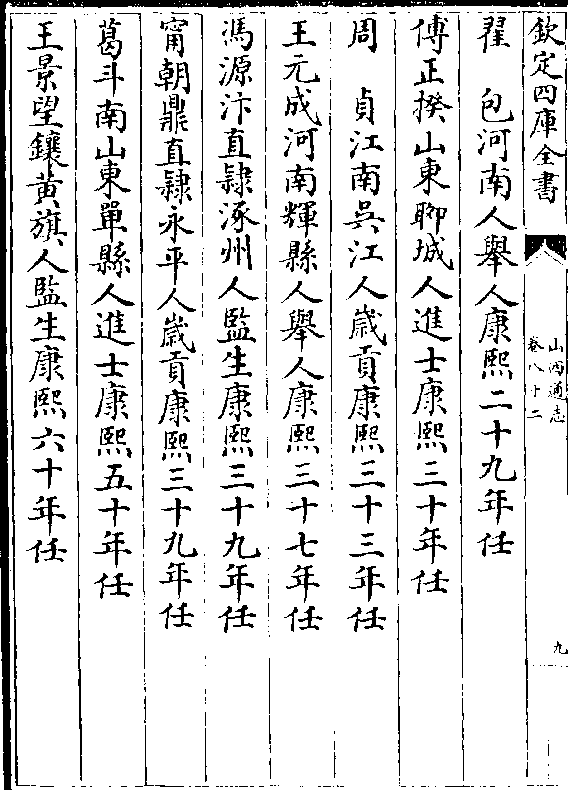 欽定四庫全書
山西通志
卷八十二
九
翟　包河南人舉人康熙二十九年任
傅正揆山東聊城人進士康熙三十年任
周　貞江南吳江人歲貢康熙三十三年任
王元成河南輝縣人舉人康熙三十七年任
馮源汴直隸涿州人監生康熙三十九年任
甯朝鼎直隸永平人歲貢康熙三十九年任
葛斗南山東單縣人進士康熙五十年任
王景望鑲黃旗人監生康熙六十年任